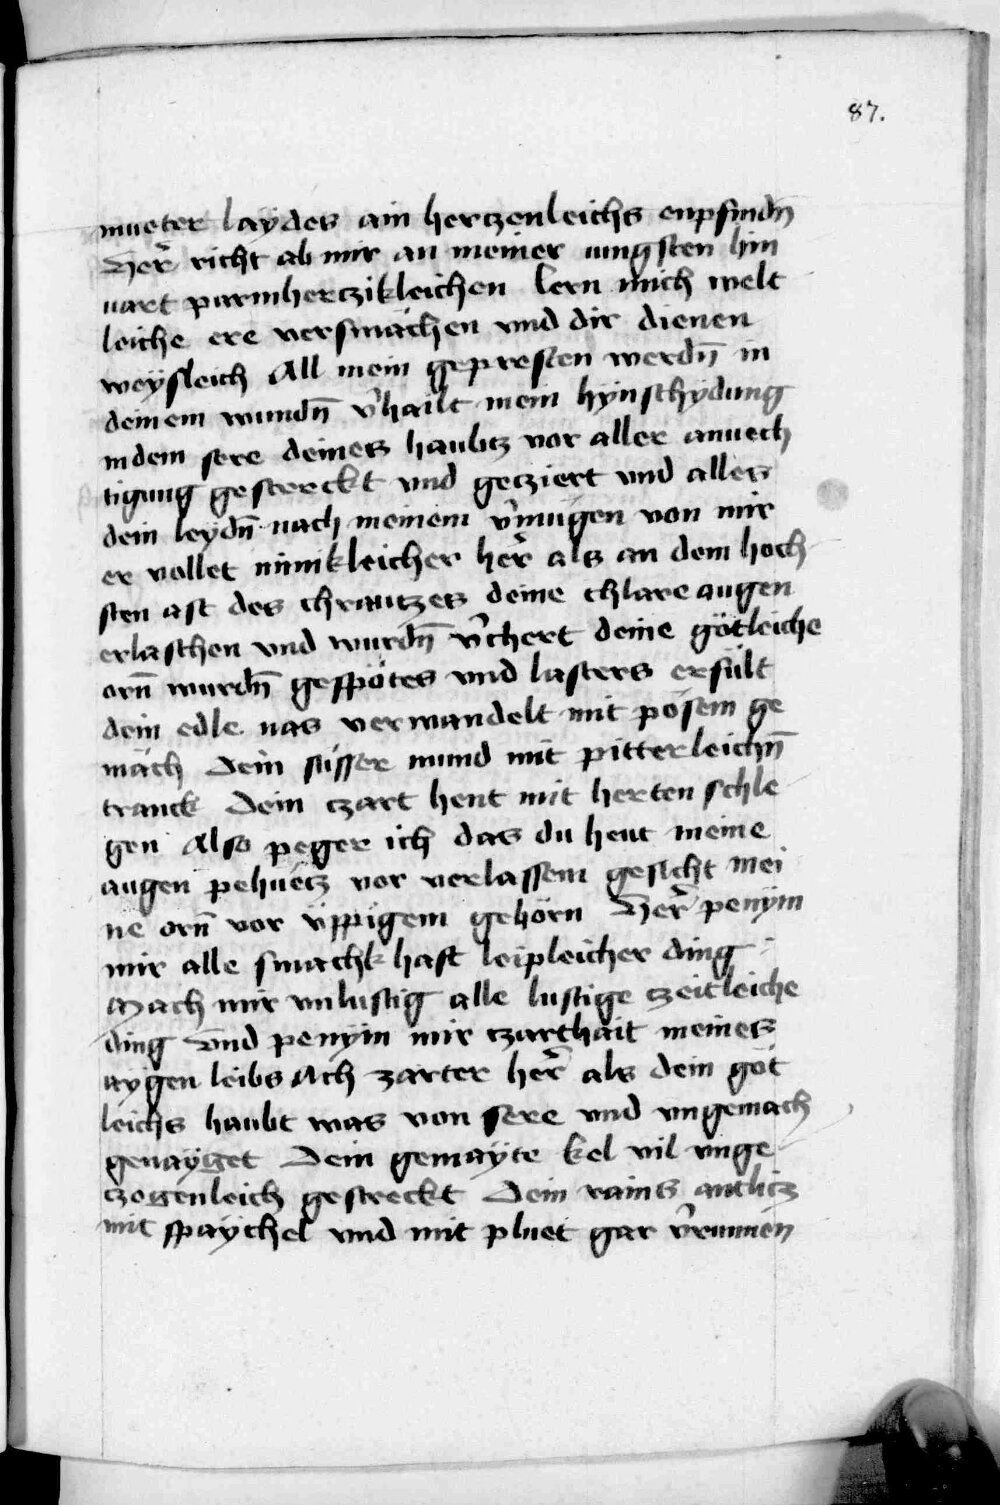 87.
mueter laÿdes ain hertzenleichs enpfindn̄
Her̄ richt ab mir an meiner iungsten hin
uart parmhertzikleichen lern mich welt
leiche ere versmächen vnd dir dienen
weÿsleich All mein gepresten werdn̄ in
deinem wundn̄ v̄hailt mein hÿnschÿdung
indem sere deines haubtz vor aller anuech
tigung gesterckt vnd getziert vnd alles
dein leydn̄ nach meinem v̄mügen von mir
er vollet minikleicher her̄ als an dem hoch
sten ast des chrautzes deine chlare augen
erlaschen vnd wurdn̄ v̄chert deine götleiche
orn̄ wurdn̄ gespötes vnd lasters erfült
dein edle nas verwandelt mit pösem ge
mäch Dein süsser mund mit pitterleichn̄
tranck Dein czart hent mit herten schle
gen Also peger ich das du heut meine
augen pehüetz vor verlassem gesicht mei
ne orn̄ vor üppigem gehörn Her̄ penÿm
mir alle smachkhaft leipleicher ding
Mach mir vnlustig alle lustige tzeitleiche
ding Vnd penÿm mir tzarthait meines
aÿgen leibs Ach zarter her̄ als dein göt
leichs haubt was von sere vnd vngemach
genaÿget Dein gemaÿte kel vil vnge
tzogenleich gestreckt Dein rains antlitz
mit spaÿchel vnd mit pluet gar v̄runnen